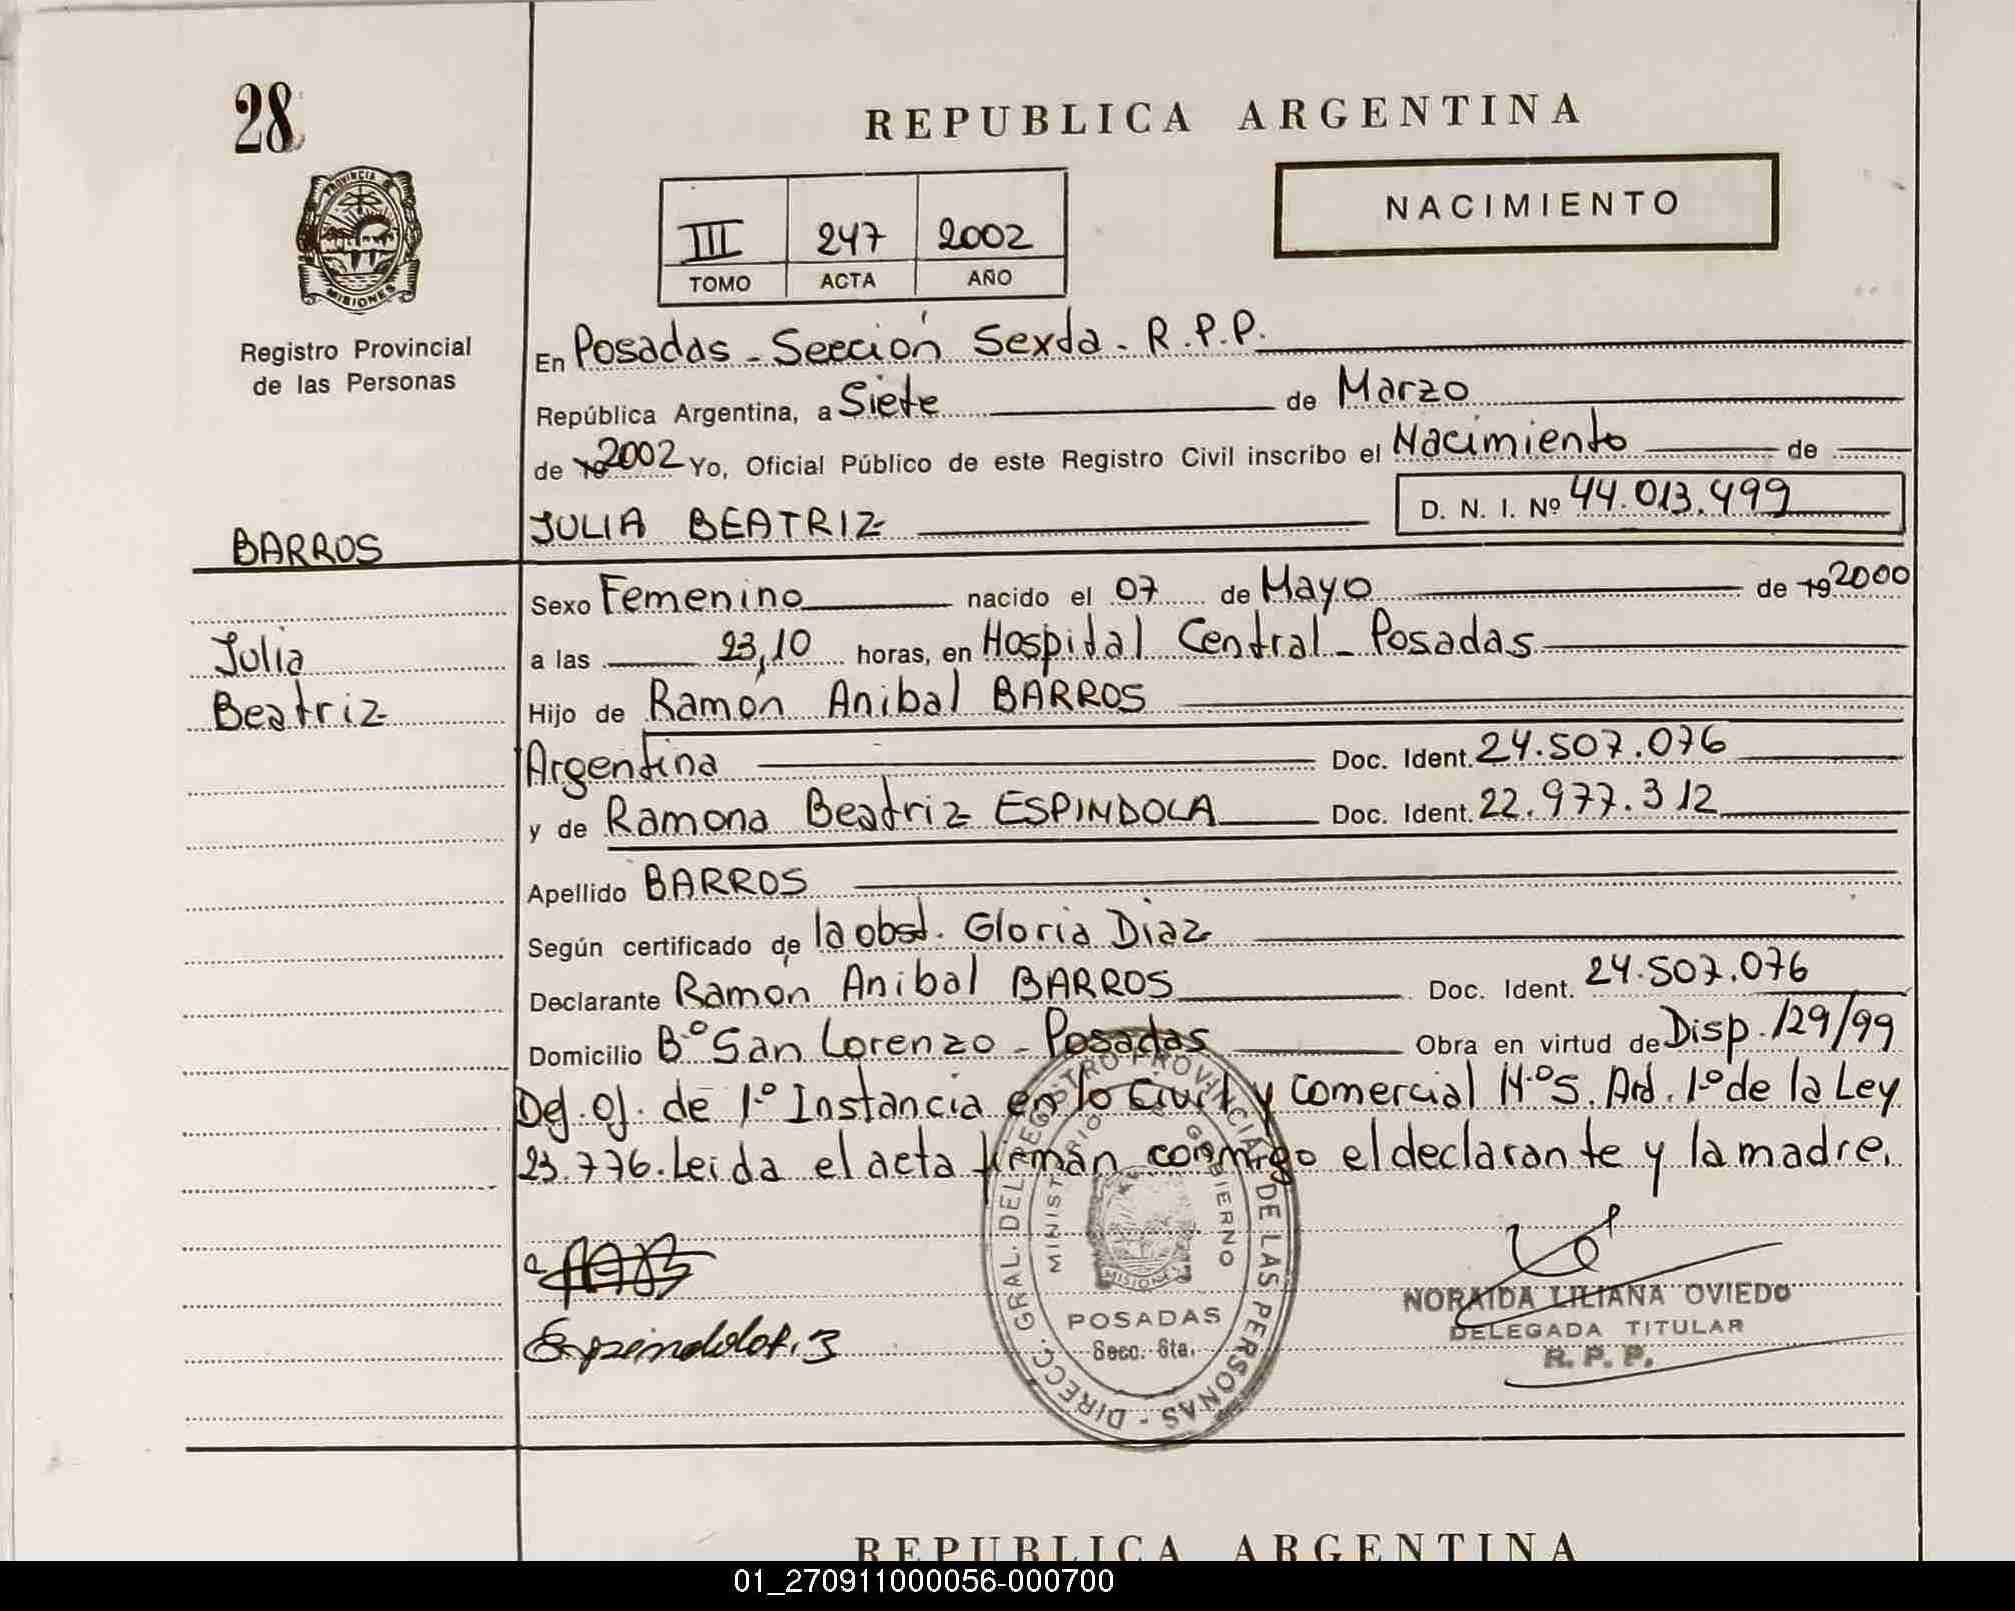 28
REPUBLICA ARGENTINA
NACIMIENTO
III 247 2002
TOMO ACTA AÑO
PROVINCIA
MISIONES
Registro Provincial
de las Personas
En Posadas - Sección Sexta - R.P.P.
República Argentina, a Siete de Marzo
de 19 2002 Yo, Oficial Público de este Registro Civil inscribo el Nacimiento de
D. N. I. Nº 44.013.499
BARROS
JULIA BEATRIZ
Sexo Femenino nacido el 07 de Mayo de 19 2000
Julia
a las 23,10 horas, en Hospital Central - Posadas
Beatriz
Hijo de Ramón Anibal BARROS
Argentina Doc. Ident. 24.507.076
y de Ramona Beatriz ESPINDOLA Doc. Ident. 22.977.312
Apellido BARROS
Según certificado de la obst. Gloria Diaz
Declarante Ramón Anibal BARROS Doc. Ident. 24.507.076
Domicilio Bº San Lorenzo - Posadas Obra en virtud de Disp. 129/99
Def. Of. de 1º Instancia en lo Civil y Comercial Nº 5. Art. 1º de la Ley
23.776. Leida el acta firman conmigo el declarante y la madre.
DIRECC. GRAL. DEL REGISTRO PROVINCIAL DE LAS PERSONAS -
MINISTERIO GOBIERNO
MISIONES
POSADAS
Secc. 6ta.
NORAIDA LILIANA OVIEDO
DELEGADA TITULAR
R. P. P.
REPUBLICA ARGENTINA
01_270911000056-000700